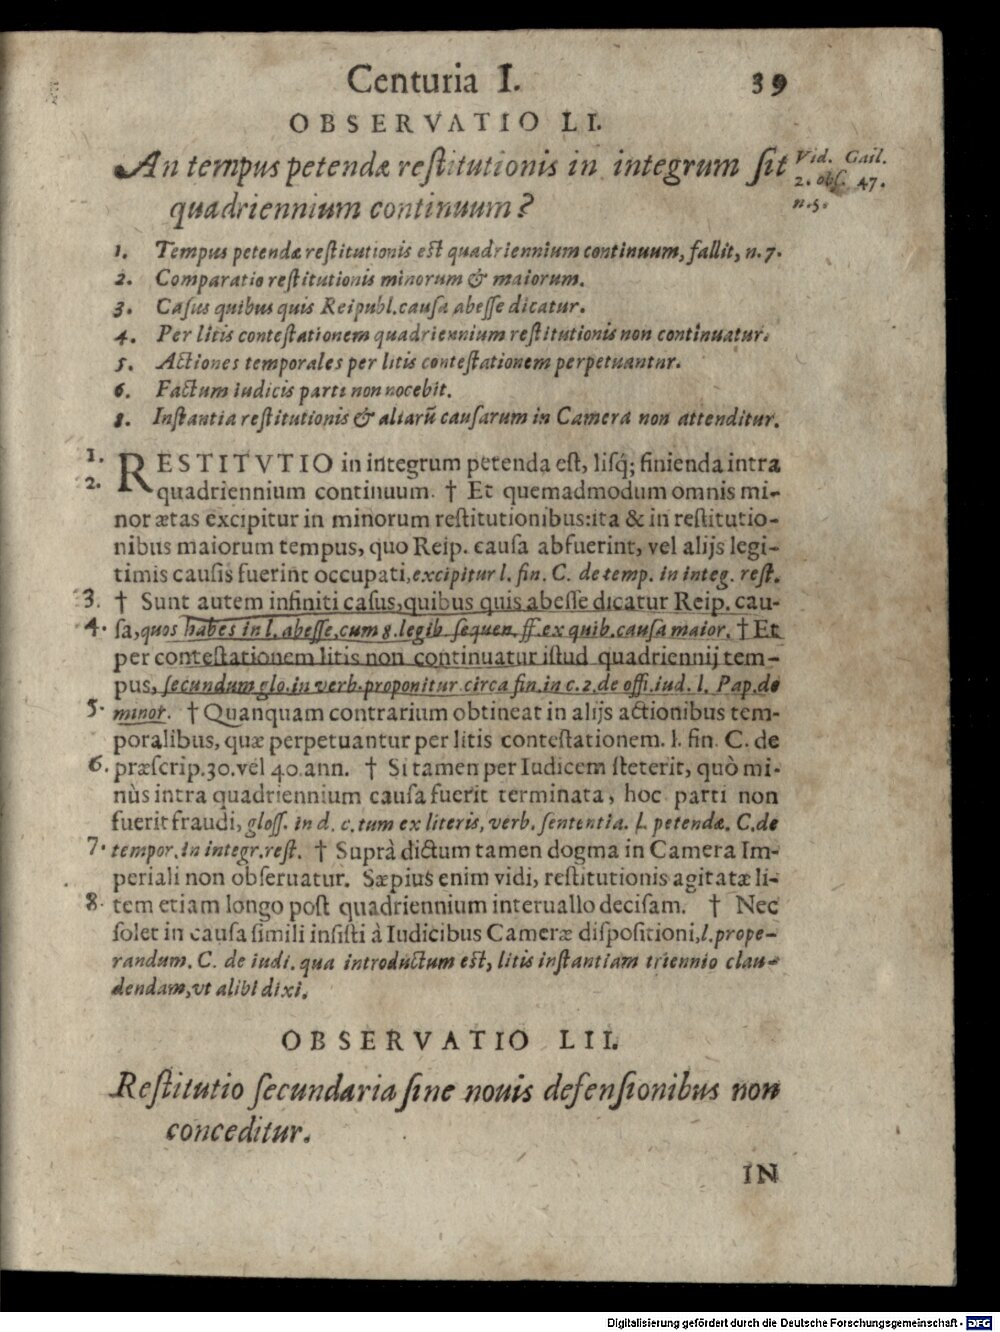 Centuria I. 39
OBSERVATIO LI.
An tempus petendæ reſtitutionis in integrum ſit
quadriennium continuum?
Vid. Gail.
2. obſ. 47.
n. 5.
1. Tempus petendæ reſtitutionis eſt quadriennium continuum, fallit, n. 7.
2. Comparatio reſtitutionis minorum & maiorum.
3. Caſus quibus quis Reipubl. cauſa abeſſe dicatur.
4. Per litis conteſtationem quadriennium reſtitutionis non continuatur.
5. Actiones temporales per litis conteſtationem perpetuantur.
6. Factum iudicis parti non nocebit.
8. Inſtantia reſtitutionis & aliarũ cauſarum in Camera non attenditur.
1. RESTITVTIO in integrum petenda eſt, liſq́; finienda intra
2. quadriennium continuum. † Et quemadmodum omnis mi-
nor ætas excipitur in minorum reſtitutionibus: ita & in reſtitutio-
nibus maiorum tempus, quo Reip. cauſa abfuerint, vel alijs legi-
timis cauſis fuerint occupati, excipitur l. fin. C. de temp. in integ. reſt.
3. † Sunt autem infiniti caſus, quibus quis abeſſe dicatur Reip. cau-
4. ſa, quos habes in l. abeſſe, cum 8. legib. ſequen. ff. ex quib. cauſa maior. † Et
per conteſtationem litis non continuatur iſtud quadriennij tem-
pus, ſecundum glo. in verb. proponitur circa fin. in c. 2. de offi. iud. l. Pap. de
5. minor. † Quanquam contrarium obtineat in alijs actionibus tem-
poralibus, quæ perpetuantur per litis conteſtationem. l. fin. C. de
6. præſcrip. 30. vel 40. ann. † Si tamen per Iudicem ſteterit, quò mi-
nùs intra quadriennium cauſa fuerit terminata, hoc parti non
fuerit fraudi, gloſſ. in d. c. tum ex literis, verb. ſententia. l. petendæ. C. de
7. tempor. in integr. reſt. † Suprà dictum tamen dogma in Camera Im-
periali non obſeruatur. Sæpius enim vidi, reſtitutionis agitatæ li-
8. tem etiam longo poſt quadriennium interuallo deciſam. † Nec
ſolet in cauſa ſimili inſiſti à Iudicibus Cameræ diſpoſitioni, l. prope-
randum. C. de iudi. qua introductum eſt, litis inſtantiam triennio clau-
dendam, vt alibi dixi.
OBSERVATIO LII.
Reſtitutio ſecundaria ſine nouis defenſionibus non
conceditur.
IN
Digitalisierung gefördert durch die Deutsche Forschungsgemeinschaft - DFG